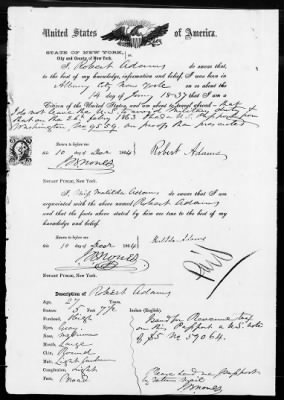 United States of America.
STATE OF NEW YORK,
City and County of New York
I, Robert Adams do swear that,
to the best of my knowledge, information and belief, I was born in
Albany City New York on or about the
14 day of Jany 1837 that I am a
Citizen of the United States, and am about to travel abroad - that
that on the 26 1863 I had a U.S. Passport from
Washington No 9559 on proof then presented
Sworn to before me
this 10 day of Decr 1864
Robert Adams
NOTARY PUBLIC, New York.
I, Matilda Adams do swear that I am
acquainted with the above named Robert Adams
and that the facts above stated by him are true to the best of my
knowledge and belief.
Sworn to before me
this 10 day of Decr 1864
Matilda Adams
NOTARY PUBLIC, New York.
Description of Robert Adams
Age, 27 Years.
Stature, 5 Feet 7 1/2 Inches (English).
Forehead, High
Eyes, Gray
Nose, Medium
Mouth, Large
Chin, Round
Hair,
Complexion, Light
Face, Broad
Revenue
on this Passport a U.S. note
of $5 No 57064.
Please send me Passport
by return mail